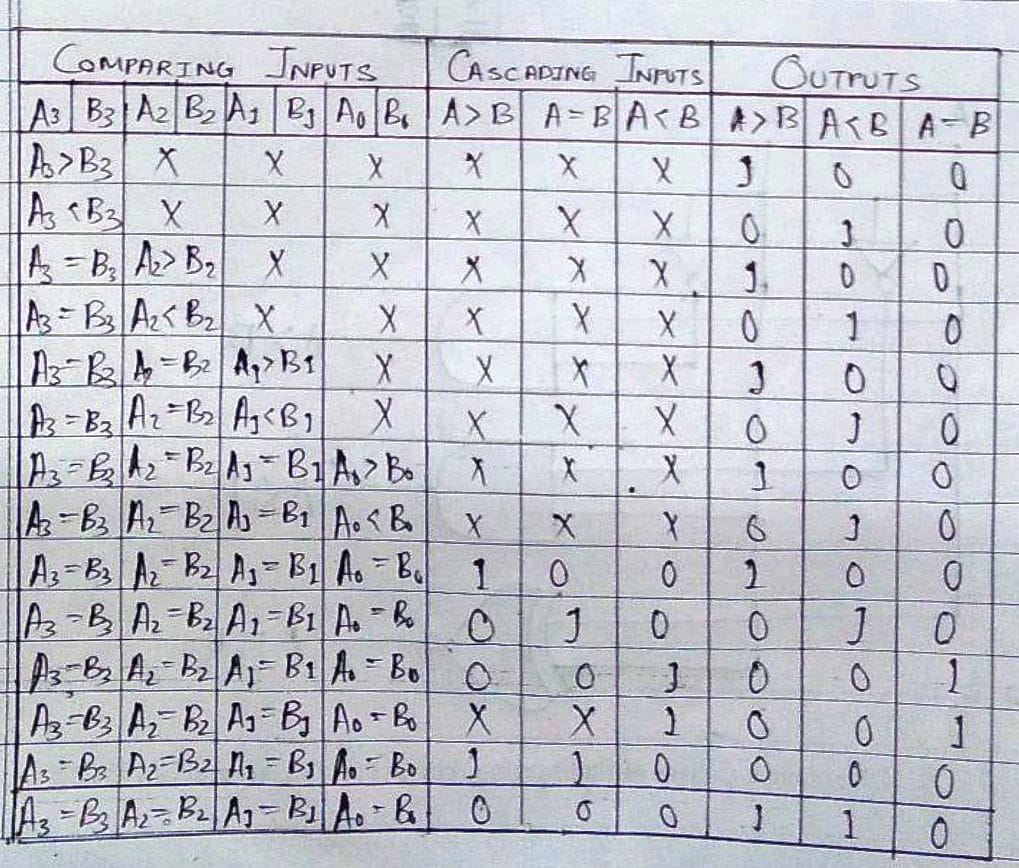 COMPARING INPUTS CASCADING INPUTS OUTPUTS
A3 B3 A2 B2 A1 B1 A0 B0 A>B A=B A<B A>B A<B A=B
A3>B3 X X X X X X 1 0 0
A3<B3 X X X X X X 0 1 0
A3=B3 A2>B2 X X X X X 1 0 0
A3=B3 A2<B2 X X X X X 0 1 0
A3=B3 A2=B2 A1>B1 X X X X 1 0 0
A3=B3 A2=B2 A1<B1 X X X X 0 1 0
A3=B3 A2=B2 A1=B1 A0>B0 X X X 1 0 0
A3=B3 A2=B2 A1=B1 A0<B0 X X X 0 1 0
A3=B3 A2=B2 A1=B1 A0=B0 1 0 0 1 0 0
A3=B3 A2=B2 A1=B1 A0=B0 0 1 0 0 1 0
A3=B3 A2=B2 A1=B1 A0=B0 0 0 1 0 0 1
A3=B3 A2=B2 A1=B1 A0=B0 X X 1 0 0 1
A3=B3 A2=B2 A1=B1 A0=B0 1 1 0 0 0 0
A3=B3 A2=B2 A1=B1 A0=B0 0 0 0 1 1 0